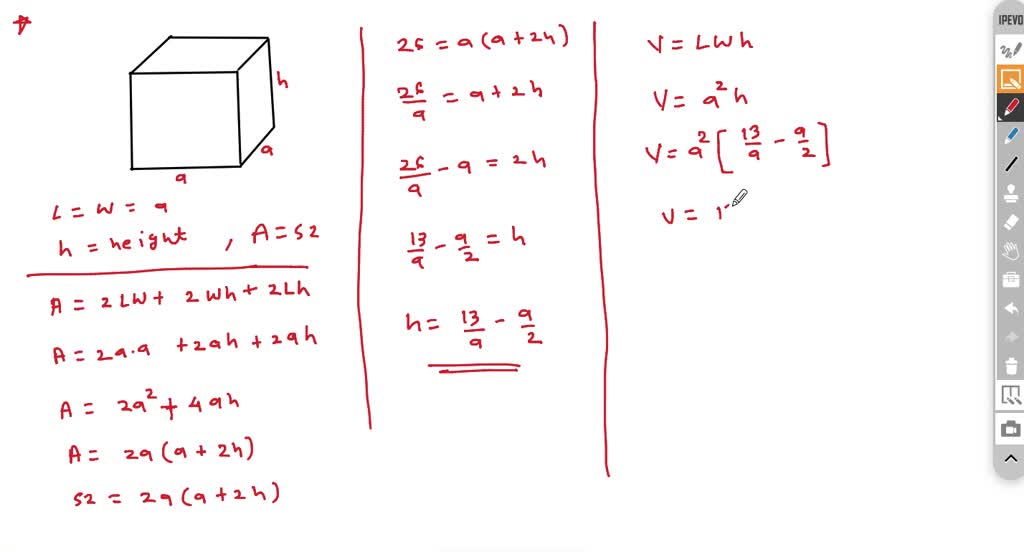 h
a
a
L = W = a
h = height , A = 52
A = 2LW + 2Wh + 2Lh
A = 2a·a + 2ah + 2ah
A = 2a² + 4ah
A = 2a(a + 2h)
52 = 2a(a + 2h)
26 = a(a + 2h)
26/a = a + 2h
26/a - a = 2h
13/a - a/2 = h
h = 13/a - a/2
V = LWh
V = a²h
V = a² [13/a - a/2]
V = 1
IPEVO